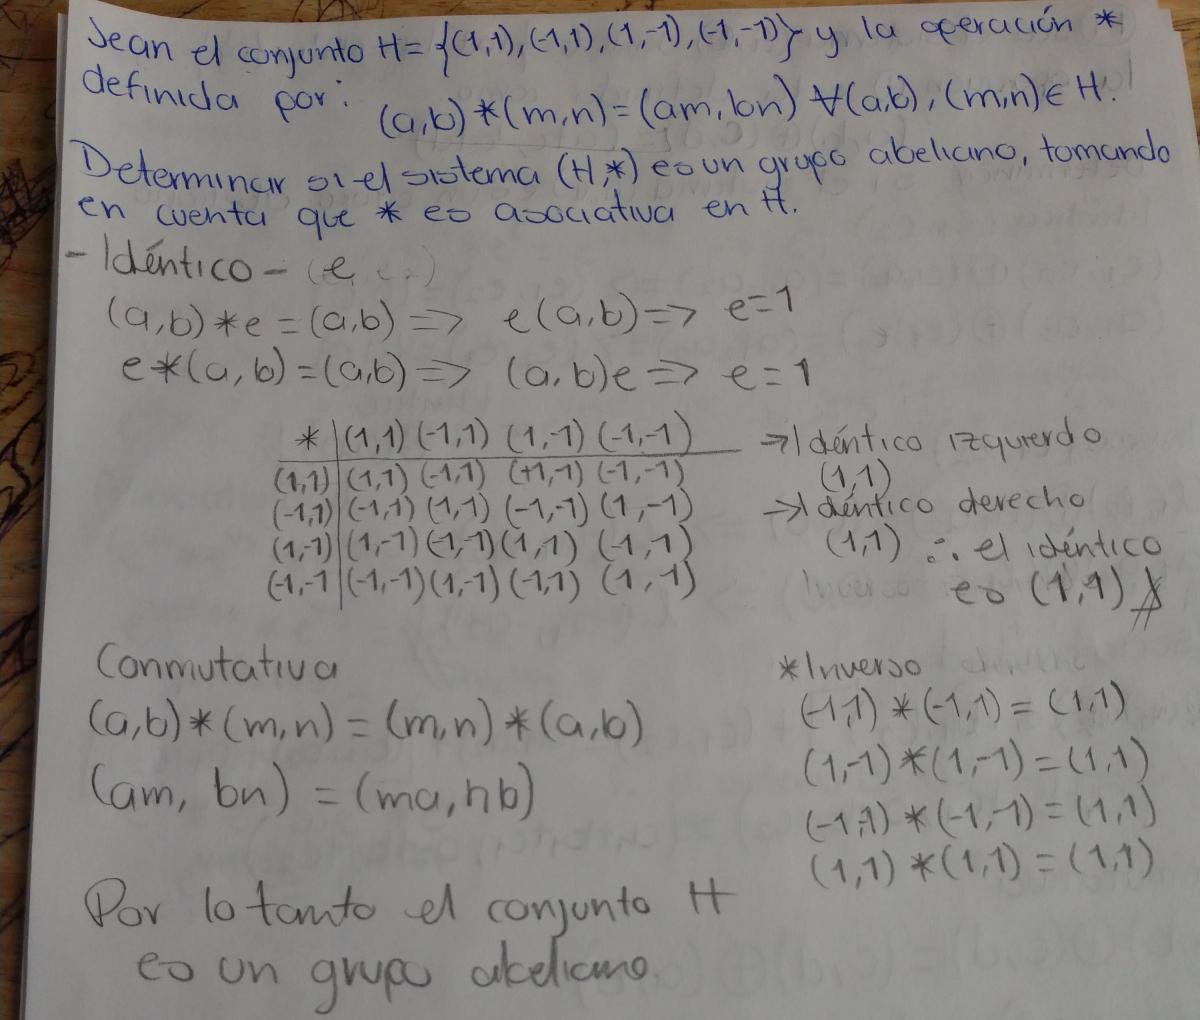 Sean el conjunto H= {(1,1),(-1,1),(1,-1),(-1,-1)} y la operación *
definida por:
(a,b)*(m,n)=(am,bn) ∀(a,b),(m,n)∈ H.
Determinar si el sistema (H,*) es un grupo abeliano, tomando
en cuenta que * es asociativa en H.
- Idéntico - (e
(a,b)*e=(a,b) => e(a,b)=> e=1
e*(a,b)=(a,b)=> (a,b)e => e=1
* (1,1) (-1,1) (1,-1) (-1,-1)
(1,1) (1,1) (-1,1) (+1,-1) (-1,-1)
(-1,1) (-1,1) (1,1) (-1,-1) (1,-1)
(1,-1) (1,-1) (-1,-1) (1,1) (-1,1)
(-1,-1 (-1,-1) (1,-1) (-1,1) (1,1)
->Idéntico izquierdo
(1,1)
->Idéntico derecho
(1,1) ∴ el idéntico
es (1,1)
Conmutativa
(a,b)*(m,n)=(m,n)*(a,b)
(am, bn) = (ma,nb)
*Inverso
(-1,1)*(-1,1)=(1,1)
(1,-1)*(1,-1)=(1,1)
(-1,-1)*(-1,-1)=(1,1)
(1,1)*(1,1)=(1,1)
Por lo tanto el conjunto H
es un grupo abeliano.